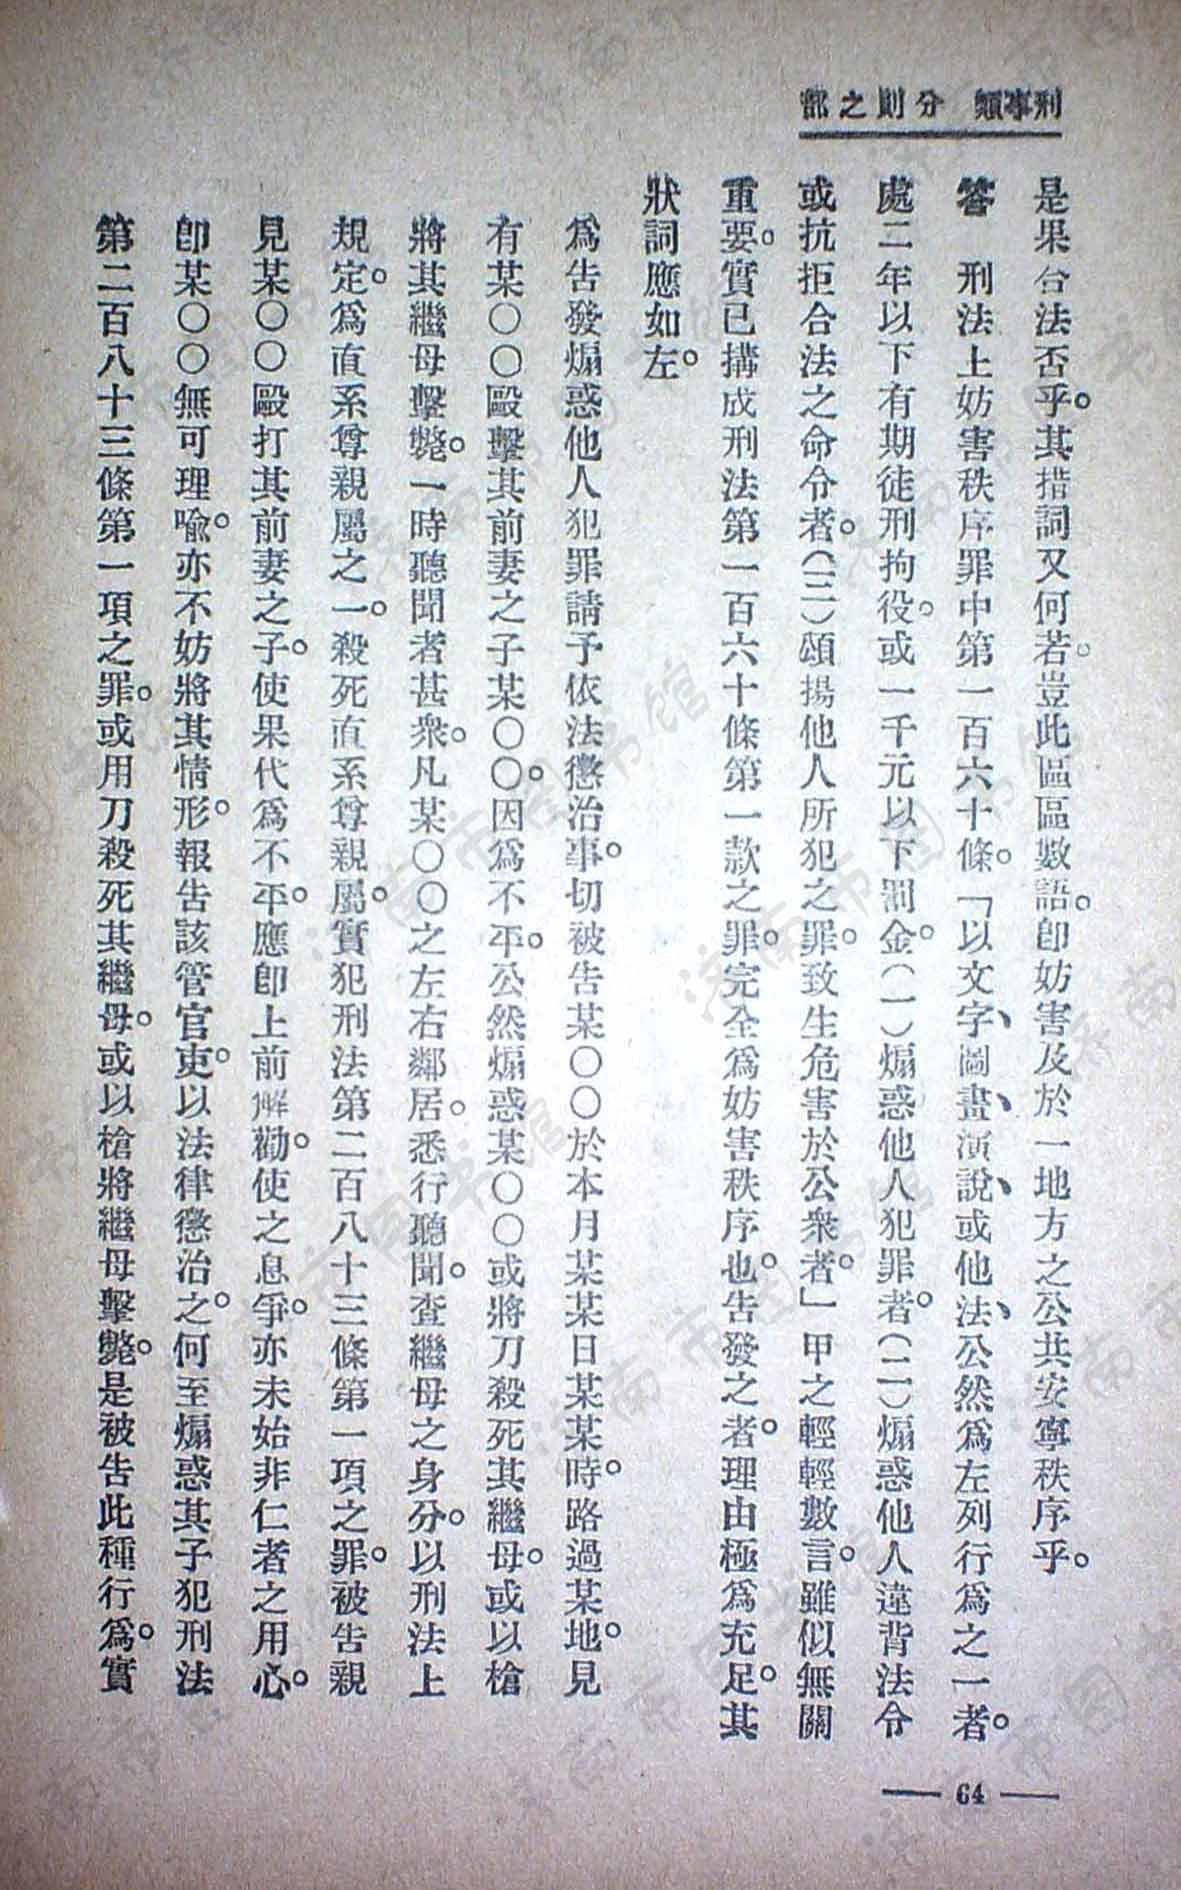 刑事類　分則之部
是果合法否乎。其措詞又何若。豈此區區數語。卽妨害及於一地方之公共安寧秩序乎。
答　刑法上妨害秩序罪中第一百六十條。「以文字、圖畫、演說、或他法、公然爲左列行爲之一者。
處二年以下有期徒刑拘役。或一千元以下罰金。(一)煽惑他人犯罪者。(二)煽惑他人違背法令
或抗拒合法之命令者。(三)頌揚他人所犯之罪。致生危害於公衆者。」甲之輕輕數言。雖似無關
重要。實已搆成刑法第一百六十條第一款之罪。完全爲妨害秩序也。告發之者。理由極爲充足。其
狀詞應如左。
爲告發煽惑他人犯罪請予依法懲治事。切被告某〇〇於本月某某日某某時。路過某地。見
有某〇〇毆擊其前妻之子某〇〇。因爲不平。公然煽惑某〇〇或將刀殺死其繼母。或以槍
將其繼母擊斃。一時聽聞者甚衆。凡某〇〇之左右鄰居。悉行聽聞。查繼母之身分。以刑法上
規定。爲直系尊親屬之一。殺死直系尊親屬。實犯刑法第二百八十三條第一項之罪。被告親
見某〇〇毆打其前妻之子。使果代爲不平。應卽上前解勸。使之息爭。亦未始非仁者之用心。
卽某〇〇無可理喻。亦不妨將其情形。報告該管官吏。以法律懲治之。何至煽惑其子犯刑法
第二百八十三條第一項之罪。或用刀殺死其繼母。或以槍將繼母擊斃。是被告此種行爲。實
— 64 —
济南市图书馆